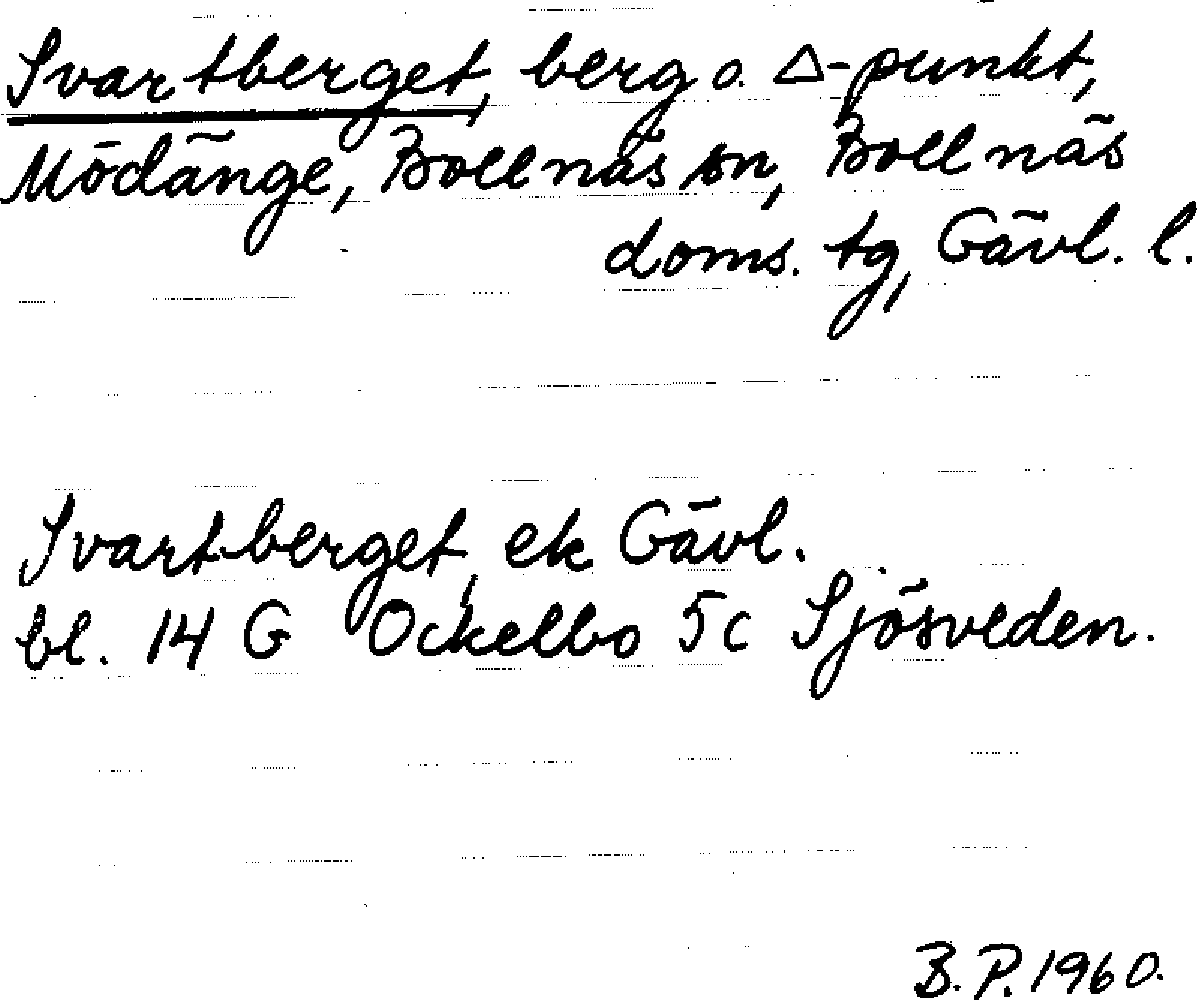 Svartberget, berg o. △-punkt,
Mödänge, Bollnäs sn, Bollnäs
doms. tg, Gävl. l.
Svartberget, ek Gävl.
bl. 14 G Ockelbo 5c Sjösveden.
B.P. 1960.